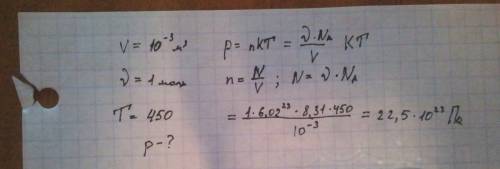 V = 10⁻³ м³    p = nKT = ν·N_A/V KT
ν = 1 моль    n = N/V ; N = ν·N_A
T = 450    = 1·6,02²³·8,31·450/10⁻³ = 22,5·10²³ Па
p - ?